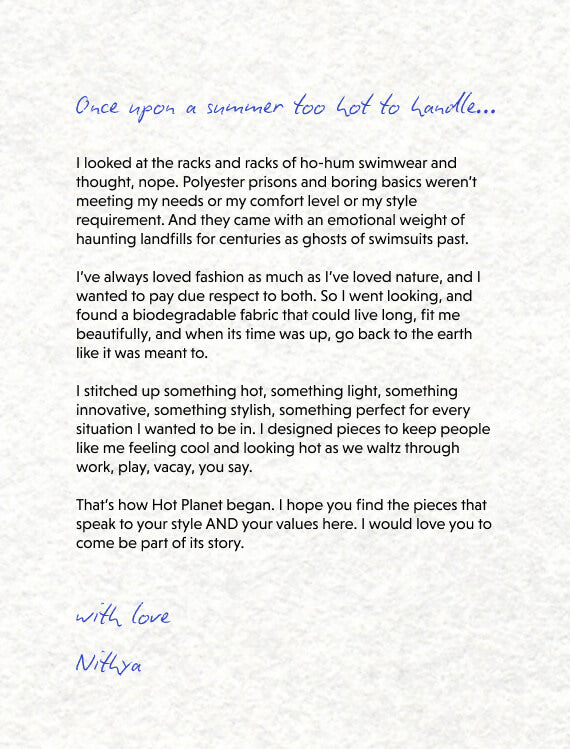 Once upon a summer too hot to handle...
I looked at the racks and racks of ho-hum swimwear and
thought, nope. Polyester prisons and boring basics weren’t
meeting my needs or my comfort level or my style
requirement. And they came with an emotional weight of
haunting landfills for centuries as ghosts of swimsuits past.
I’ve always loved fashion as much as I’ve loved nature, and I
wanted to pay due respect to both. So I went looking, and
found a biodegradable fabric that could live long, fit me
beautifully, and when its time was up, go back to the earth
like it was meant to.
I stitched up something hot, something light, something
innovative, something stylish, something perfect for every
situation I wanted to be in. I designed pieces to keep people
like me feeling cool and looking hot as we waltz through
work, play, vacay, you say.
That’s how Hot Planet began. I hope you find the pieces that
speak to your style AND your values here. I would love you to
come be part of its story.
with love
Nithya